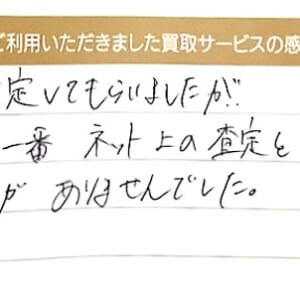 ご利用いただきました買取サービスの感
定してもらいましたが
一番 ネット上の査定と
が ありませんでした。